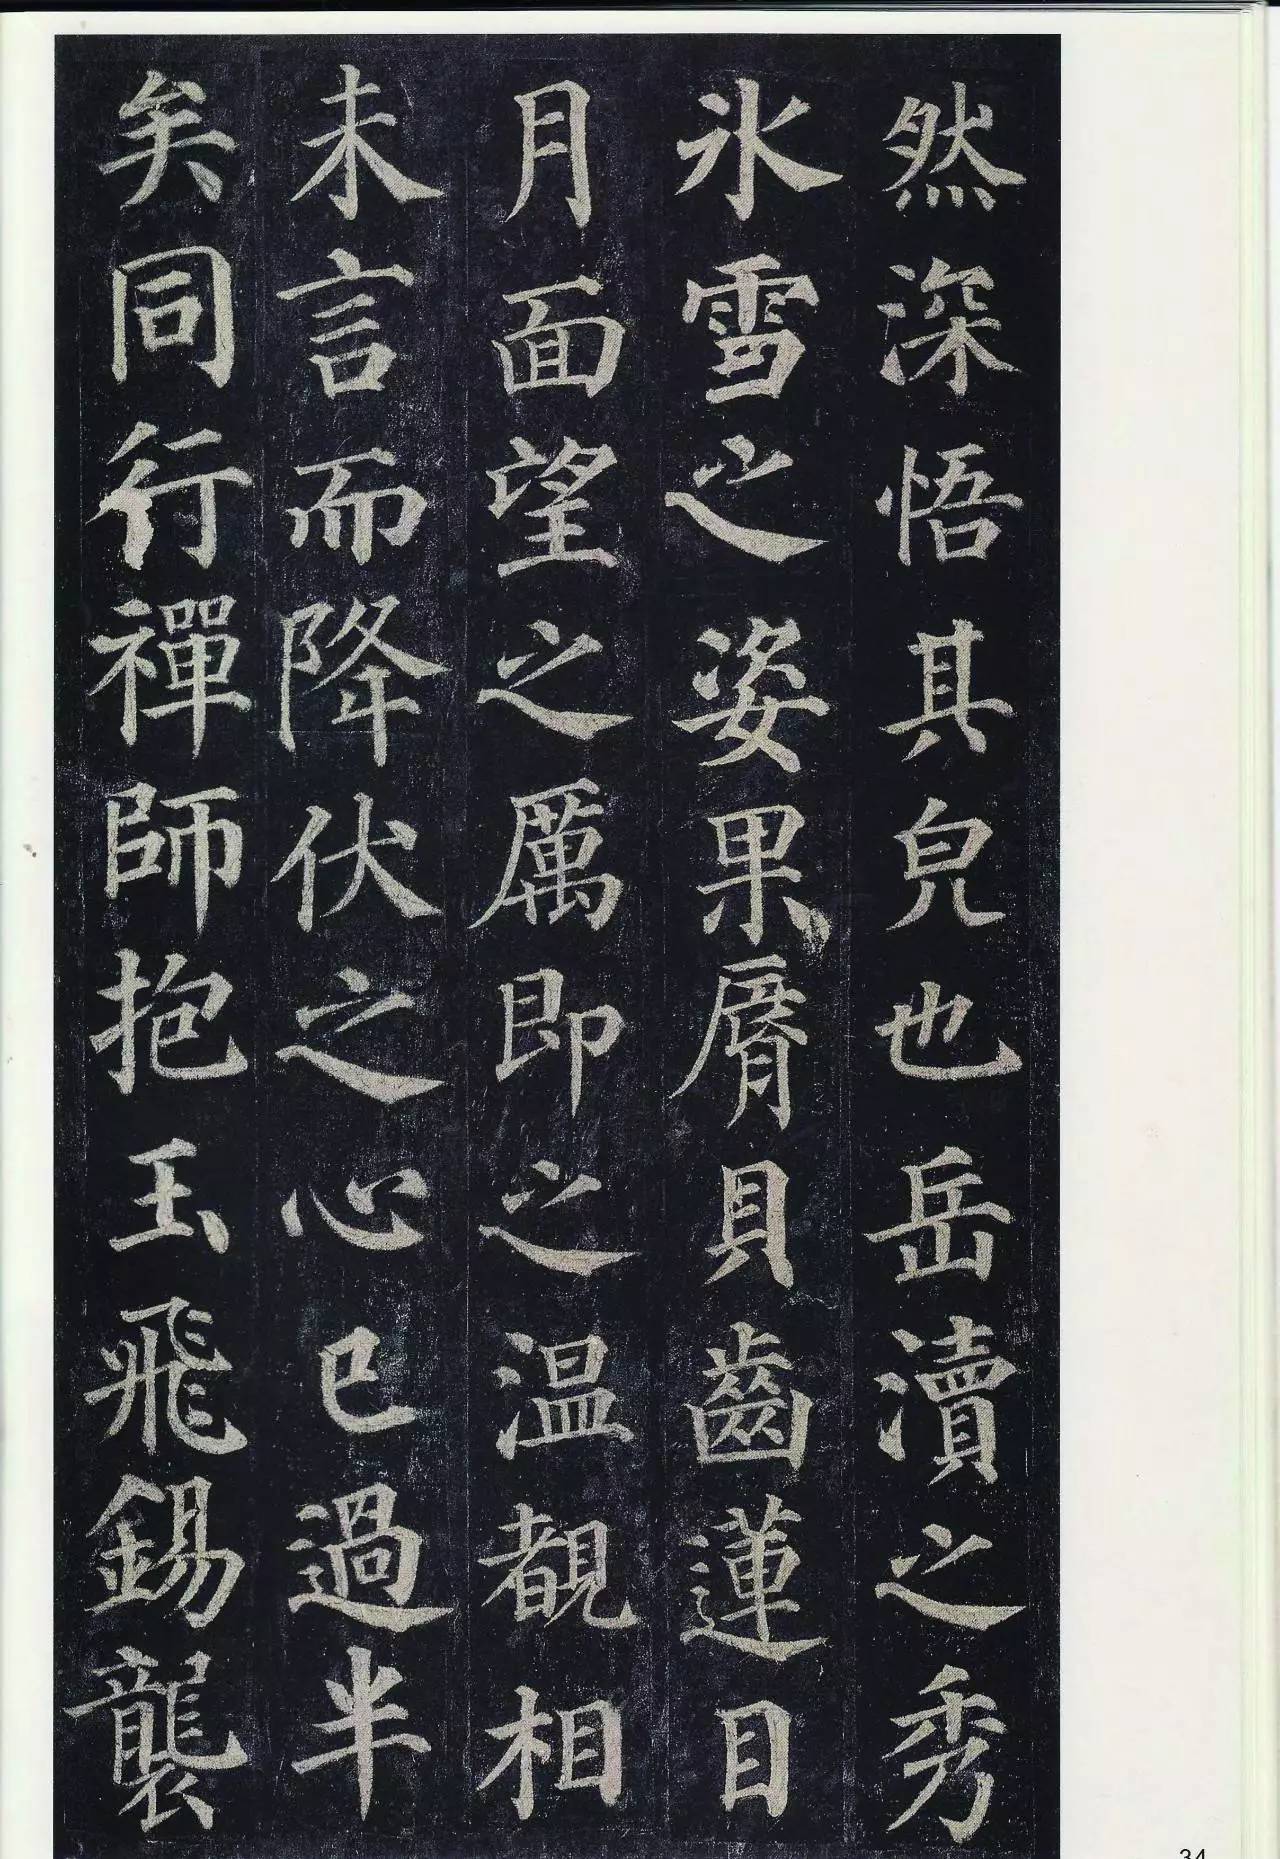 然深悟其皃也岳瀆之秀
氷雪之姿果脣貝齒蓮目
月面望之厲即之温覩相
未言而降伏之心已過半
矣同行禪師抱玉飛錫襲
34